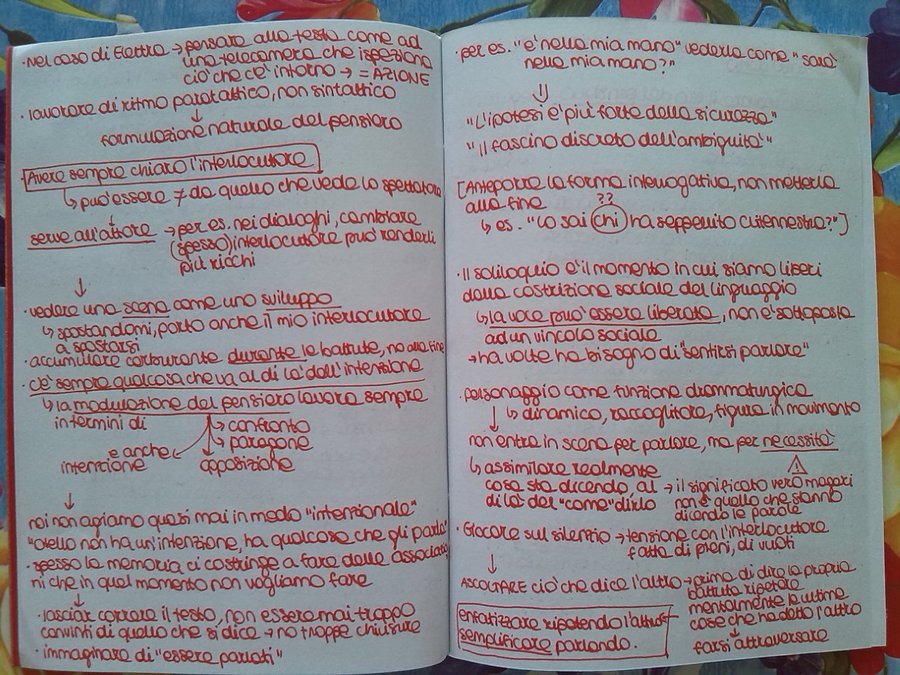 · Nel caso di Elettra → pensare alla testa come ad
una telecamera che ispeziona
ciò che c'è intorno → = AZIONE
· lavorare di ritmo paratattico, non sintattico
↓
formulazione naturale del pensiero
Avere sempre chiaro l'interlocutore
↳ può essere ≠ da quello che vede lo spettatore
↓
serve all'attore → per es. nei dialoghi, cambiare
(spesso) interlocutore può renderli
più ricchi
↓
· vedere una scena come uno sviluppo
↳ spostandomi, porto anche il mio interlocutore
a spostarsi
· accumulare carburante durante le battute, no alla fine
· c'è sempre qualcosa che va al di là dell'intenzione
↳ la modulazione del pensiero lavora sempre
in termini di → confronto
→ paragone
e anche
intenzione opposizione
↓
noi non agiamo quasi mai in modo "intenzionale"
"Otello non ha un'intenzione, ha qualcosa che gli parla"
· spesso la memoria ci costringe a fare delle associazio
ni che in quel momento non vogliamo fare
↓
· lasciar correre il testo, non essere mai troppo
convinti di quello che si dice → no troppe chiusure
· immaginare di "essere parlati"
· per es. "è nella mia mano" vederla come "sarà
nella mia mano?"
⇓
"L'ipotesi è più forte della sicurezza"
"Il fascino discreto dell'ambiguità"
[Anteporre la forma interrogativa, non metterla
alla fine ??
↳ es. "Lo sai chi ha seppellito Clitennestra?"]
· Il soliloquio è il momento in cui siamo liberi
dalla costrizione sociale del linguaggio
↳ la voce può essere liberata, non è sottoposta
ad un vincolo sociale
→ ha volte ha bisogno di "sentirsi parlare"
· personaggio come funzione drammaturgica
↓ ↳ dinamico, raccoglitore, figura in movimento
non entra in scena per parlare, ma per necessità
↳ assimilare realmente
cosa sto dicendo al
di là del "come" dirlo
⚠
→ il significato vero magari
non è quello che stanno
dicendo le parole
· Giocare sul silenzio → tensione con l'interlocutore
fatta di pieni, di vuoti
↓
ASCOLTARE ciò che dice l'altro → prima di dire la propria
battuta ripetere
mentalmente le ultime
cose che ha detto l'altro
↓
farsi attraversare
enfatizzare ripetendo l'altro
semplificare parlando.